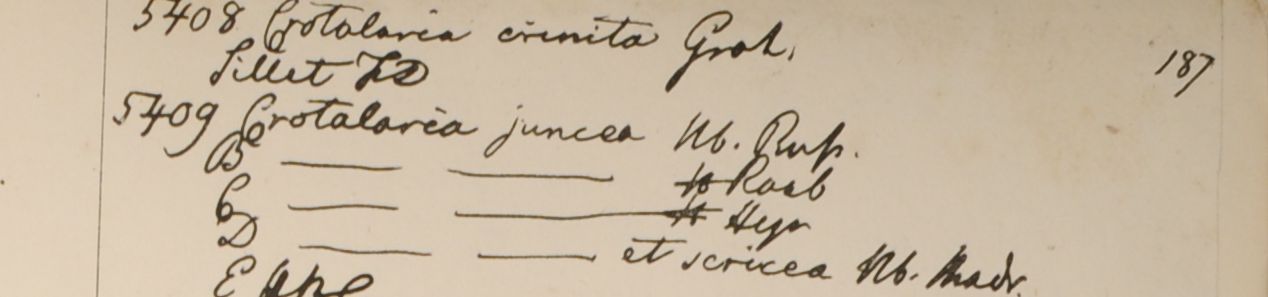 5408 Crotalaria crinita Grah. 187
Sillet FD
5409 Crotalaria juncea Hb. Russ.
B — — H Roxb
C — — H Heyn
D — — et sericea Hb. Madr.
E